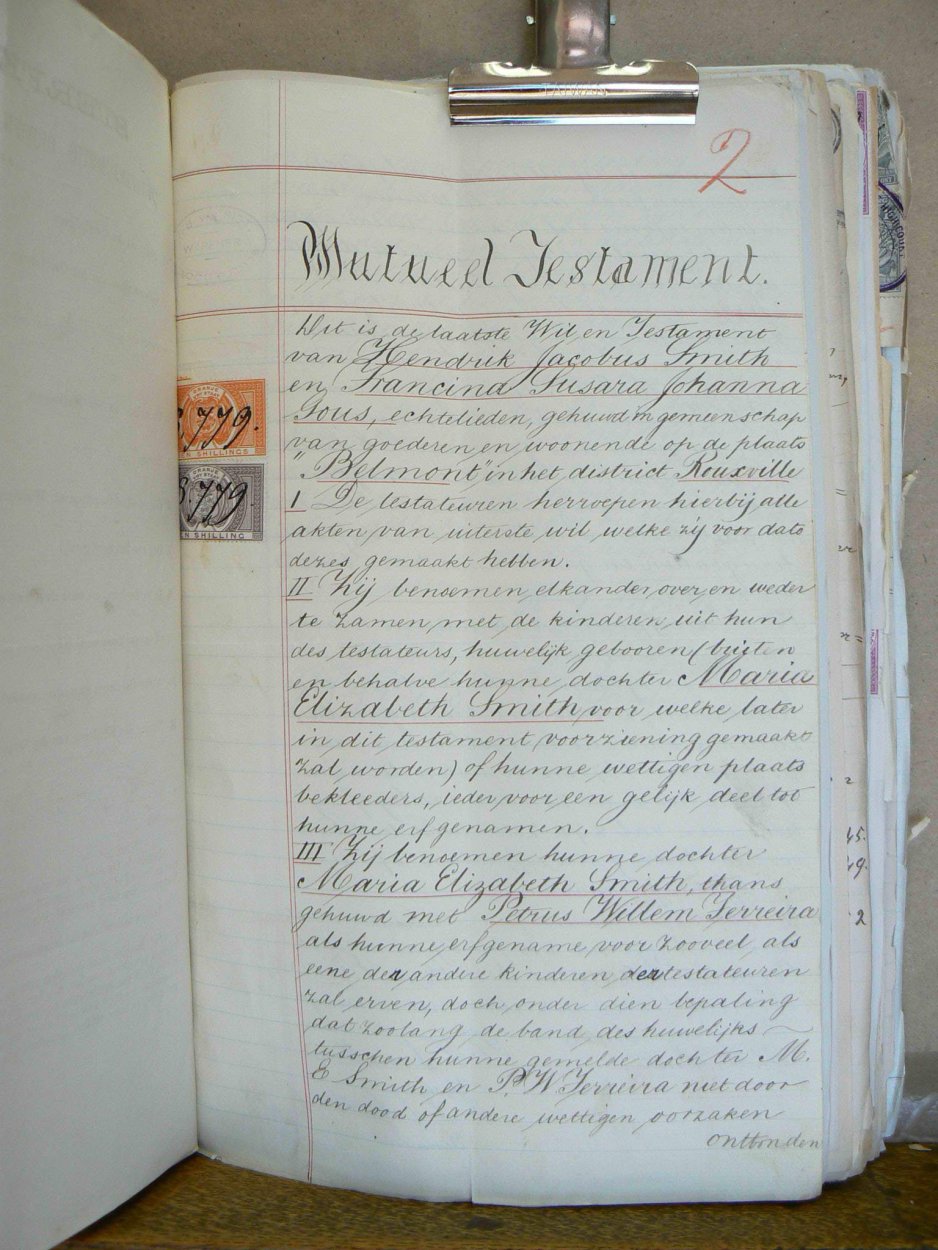 TAIWAN
2
Mutueel Testament.
Dit is de laatste Wil en Testament
van Hendrik Jacobus Smith
en Francina Susara Johanna
Gous, echtelieden, gehuwd in gemeenschap
van goederen en woonende op de plaats
"Belmont" in het district Rouxville
I De testateuren herroepen hierbij alle
akten van uiterste wil welke zij voor dato
dezes gemaakt hebben.
II Zij benoemen elkander over en weder
te zamen met de kinderen uit hun
des testateurs, huwelijk gebooren (buiten
en behalve hunne dochter Maria
Elizabeth Smith voor welke later
in dit testament voorziening gemaakt
zal worden) of hunne wettigen plaats
bekleeders, ieder voor een gelijk deel tot
hunne erfgenamen.
III Zij benoemen hunne dochter
Maria Elizabeth Smith, thans
gehuwd met Petrus Willem Ferreira
als hunne erfgename voor zooveel als
eene der andere kinderen der testateuren
zal erven, doch onder dien bepaling
dat zoolang de band des huwelijks
tusschen hunne gemelde dochter M.
E Smith en P. W Ferreira niet door
den dood of andere wettigen oorzaken
ontbonden
ORANJE
8.779.
EN SHILLINGS
ORANJE
8.779
N SHILLING
45.
49.
2